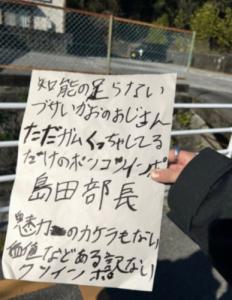 知能の足らない
づけいがおのおじさん
ただガムくっちゃしてる
だけのポンコツインポ
島田部長
魅力のカケラもない
価値などある訳ない
クソインポ